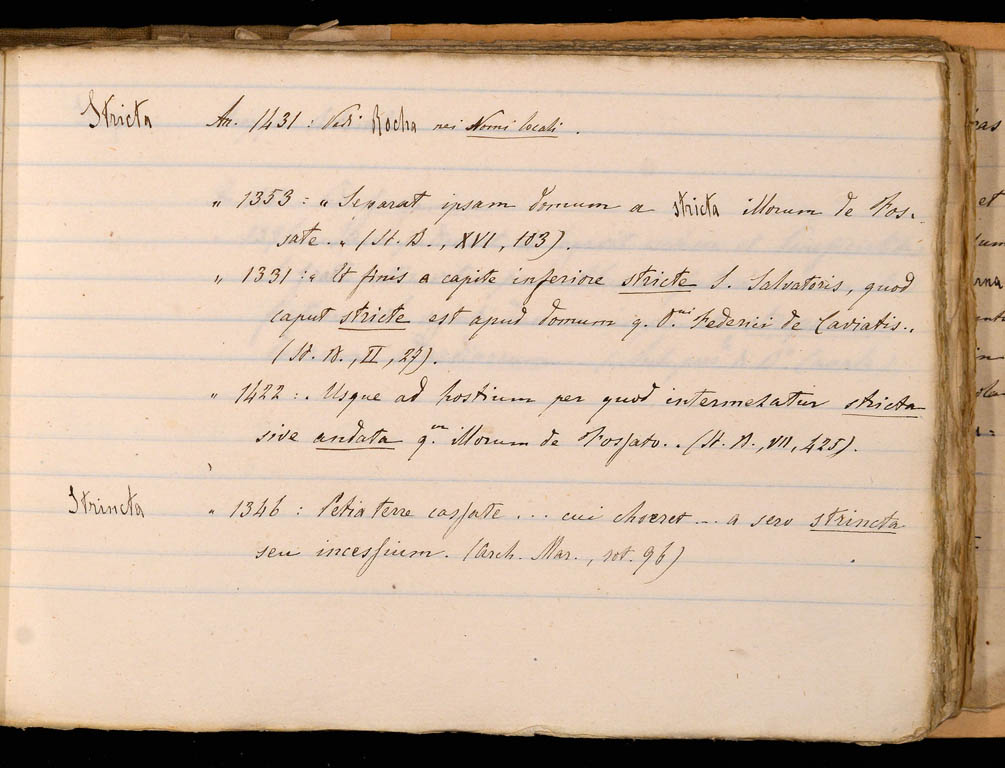 Stricta An. 1431: Vedi Rocha nei Nomi locali.
„ 1353: „ Separat ipsam domum a stricta illorum de Fos-
sato. „ (St. B., XVI, 103).
„ 1331: „ Et finis a capite inferiore stricte S. Salvatoris, quod
caput stricte est apud domum q. D.ni Federici de Caviatis.„
(St. B., II, 27).
„ 1422: „ Usque ad hostium per quod intermezatur stricta
sive andata q.m illorum de Fossato. „ (St. B., VII, 425).
Strincta „ 1346: Petia terre cassate ... cui choeret ... a sero strincta
seu incessium. (Arch. Mar., rot. 96)
cas
et
um
rna